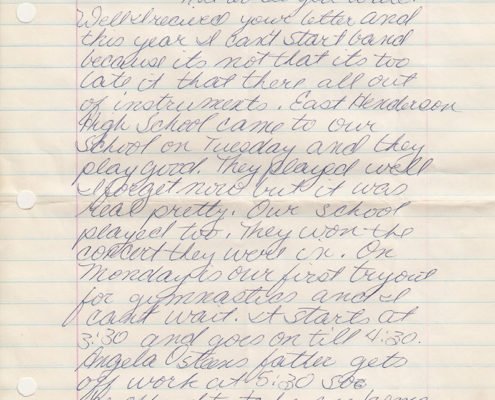 Well I received your letter and
this year I cant start band
because its not that its too
late it that there all out
of instruments. East Henderson
High School came to our
school on Tuesday and they
play good. They played well
I forget now but it was
real pretty. Our school
played to. They won the
concert they were in. On
Monday is our first tryout
for gymnastics and I
cant wait. It starts at
3:30 and goes on till 4:30.
Angela father gets
off work at 5:30 so